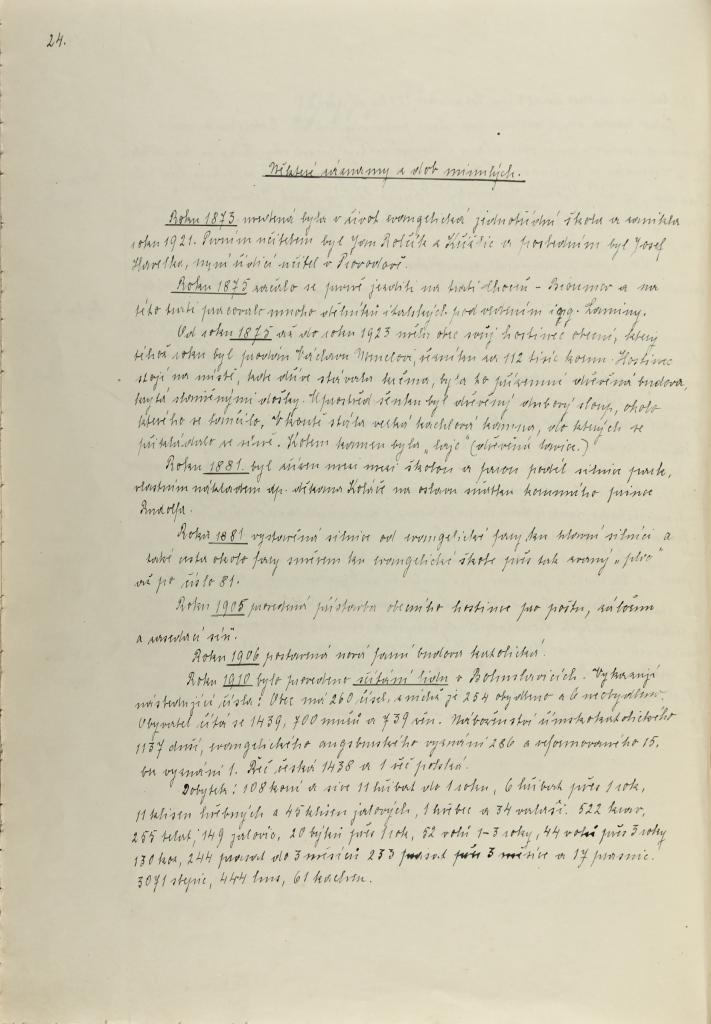 24.
Některé záznamy z dob minulých.
Roku 1873 uvedená byla v život evangelická jednotřídní škola a zanikla
roku 1921. Prvním učitelem byl Jan Rolčík z a posledním byl Josef
Havelka, nyní řídící učitel v Provodově.
Roku 1875 začalo se prvně jezditi na trati – a na
této trati pracovalo mnoho dělníků italských pod vedením
Od roku 1875 až do roku 1923 měla obec svůj hostinec obecní, který
téhož roku byl prodán Václavu řezníku za 112 tisíc korun. Hostinec
stojí na místě, kde dříve stávala krčma, byla to přízemní dřevěná budova,
krytá slaměnými došky. Uprostřed šenku byl dřevěný dubový sloup, okolo
kterého se tančilo. V koutě stála velká kachlová kamna, do kterých se
přikládalo ze síně. Kolem kamen byla „ (dřevěná lavice.)
Roku 1881. byl mezi školou a farou podél silnice park,
vlastním nákladem dp. děkana Koláře na oslavu sňatku korunního prince
Rudolfa.
Roku 1881 vystavěná silnice od evangelické fary ku hlavní silnici a
také cesta okolo fary směrem ku evangelické škole přes tak zvaný
až po číslo 81.
Roku 1905 provedená přístavba obecního hostince pro poštu, záložnu
a zasedací síň.
Roku 1906 postavená nová farní budova katolická.
Roku 1910 bylo provedeno sčítání lidu v Bohuslavicích. Vykazují
následující čísla: Obec má 260 čísel, z nichž je 254 obydleno a 6 neobydleno.
Obyvatel čítá se 1439, 700 mužů a 739 žen. Náboženství římskokatolického
1137 duší, evangelického augsburského vyznání 286 a reformovaného 15.
bez vyznání 1. Řeč česká 1438 a 1 řeč polská.
Dobytek: 108 koní a sice 11 hříbat do 1 roku, 6 hříbat přes 1 rok,
11 klisen hřebných a 45 klisen jalových, 1 hřebec a 34 valaši. 522 krav,
255 telat, 149 jalovic, 20 býků přes 1 rok, 52 volů 1–3 roky, 44 volů přes 3 roky
130 koz, 244 prasat do 3 měsíců 233 prasat přes 3 měsíce a 17 prasnic.
3071 slepic, 444 hus, 61 kachen.